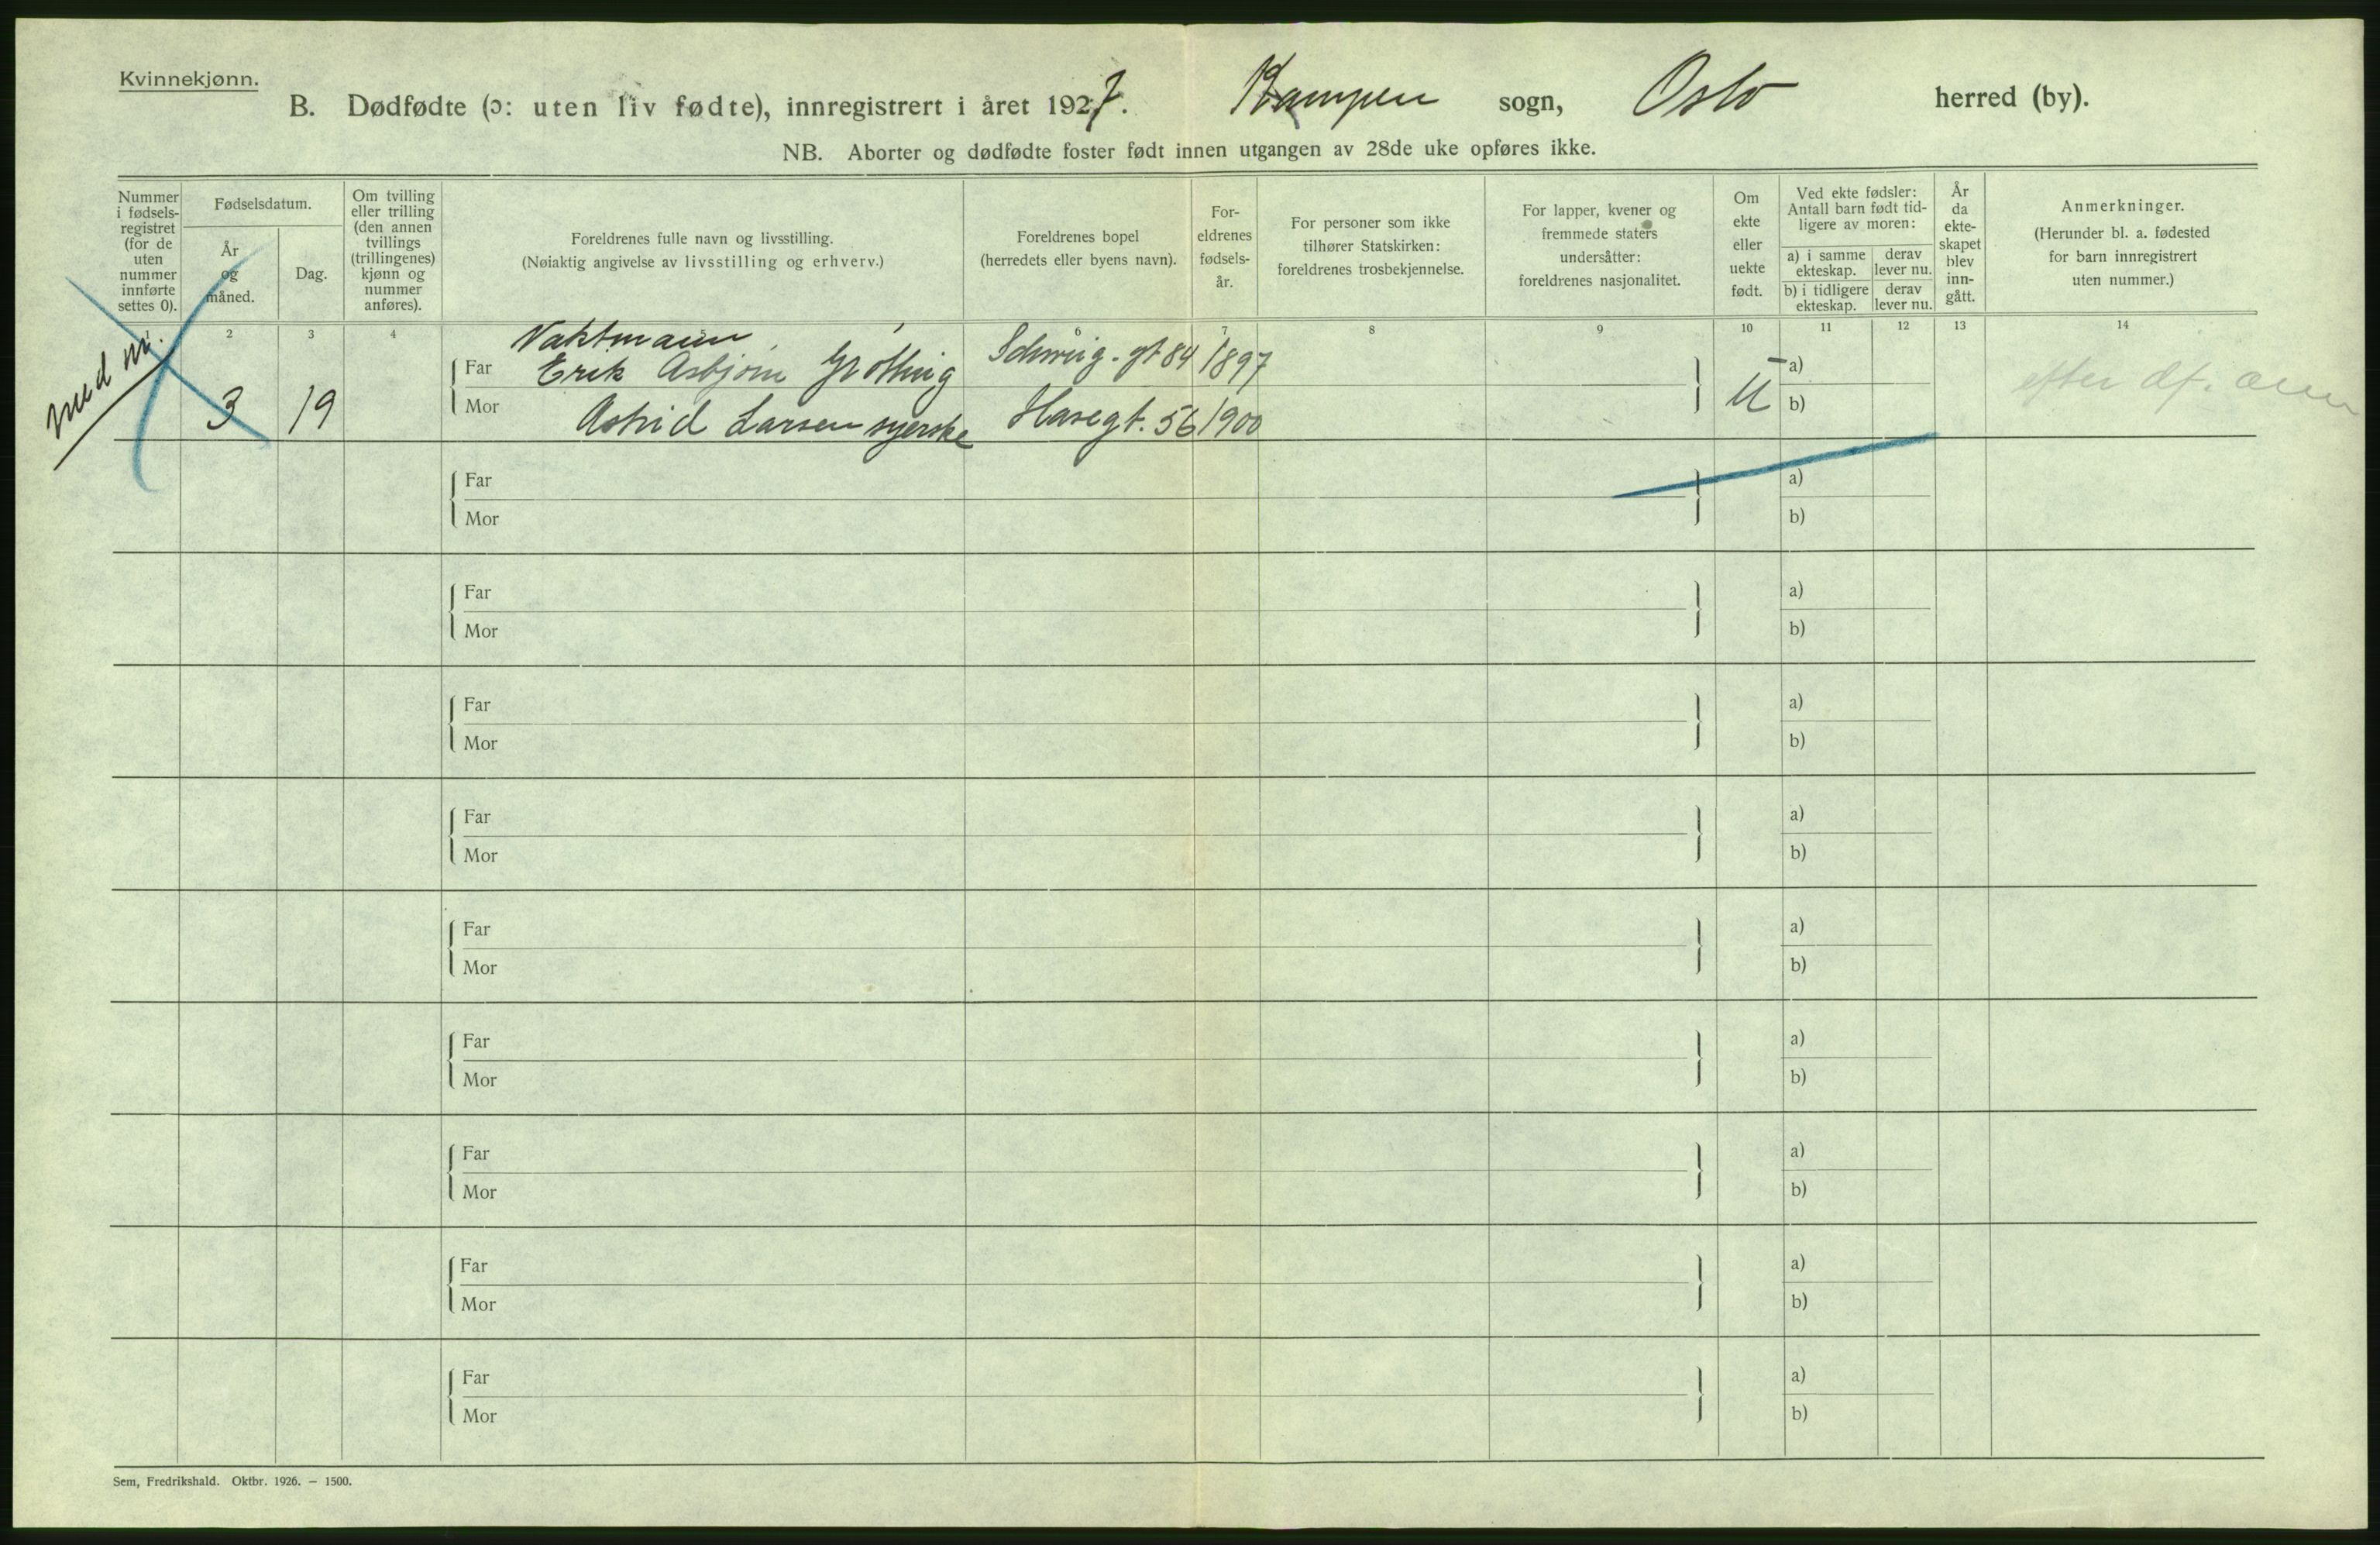 Kvinnekjønn.
B. Dødfødte (ɔ: uten liv fødte), innregistrert i året 1927. Kampen sogn, Oslo herred (by).
NB. Aborter og dødfødte foster født innen utgangen av 28de uke opføres ikke.
Nummer
i fødsels-
registret
(for de
uten
nummer
innførte
settes 0).
Fødselsdatum.
År
og
måned.
Dag.
Om tvilling
eller trilling
(den annen
tvillings
(trillingenes)
kjønn og
nummer
anføres).
Foreldrenes fulle navn og livsstilling.
(Nøiaktig angivelse av livsstilling og erhverv.)
Foreldrenes bopel
(herredets eller byens navn).
For-
eldrenes
fødsels-
år.
For personer som ikke
tilhører Statskirken:
foreldrenes trosbekjennelse.
For lapper, kvener og
fremmede staters
undersåtter:
foreldrenes nasjonalitet.
Om
ekte
eller
uekte
født.
Ved ekte fødsler:
Antall barn født tid-
ligere av moren:
a) i samme
ekteskap.
derav
lever nu.
b) i tidligere
ekteskap.
derav
lever nu.
År
da
ekte-
skapet
blev
inn-
gått.
Anmerkninger.
(Herunder bl. a. fødested
for barn innregistrert
uten nummer.)
1 2 3 4 6 7 8 9 10 11 12 13 14
med nr.
3 19
Vaktmann
Far Erik Asbjørn Schweig. gt 84 1897 a)
Mor Astrid Larsen syerske Hasegt. 56 1900 U b)
efter df.
Far a)
Mor b)
Far a)
Mor b)
Far a)
Mor b)
Far a)
Mor b)
Far a)
Mor b)
Far a)
Mor b)
Far a)
Mor b)
Far a)
Mor b)
Far a)
Mor b)
Sem, Fredrikshald. Oktbr. 1926. – 1500.